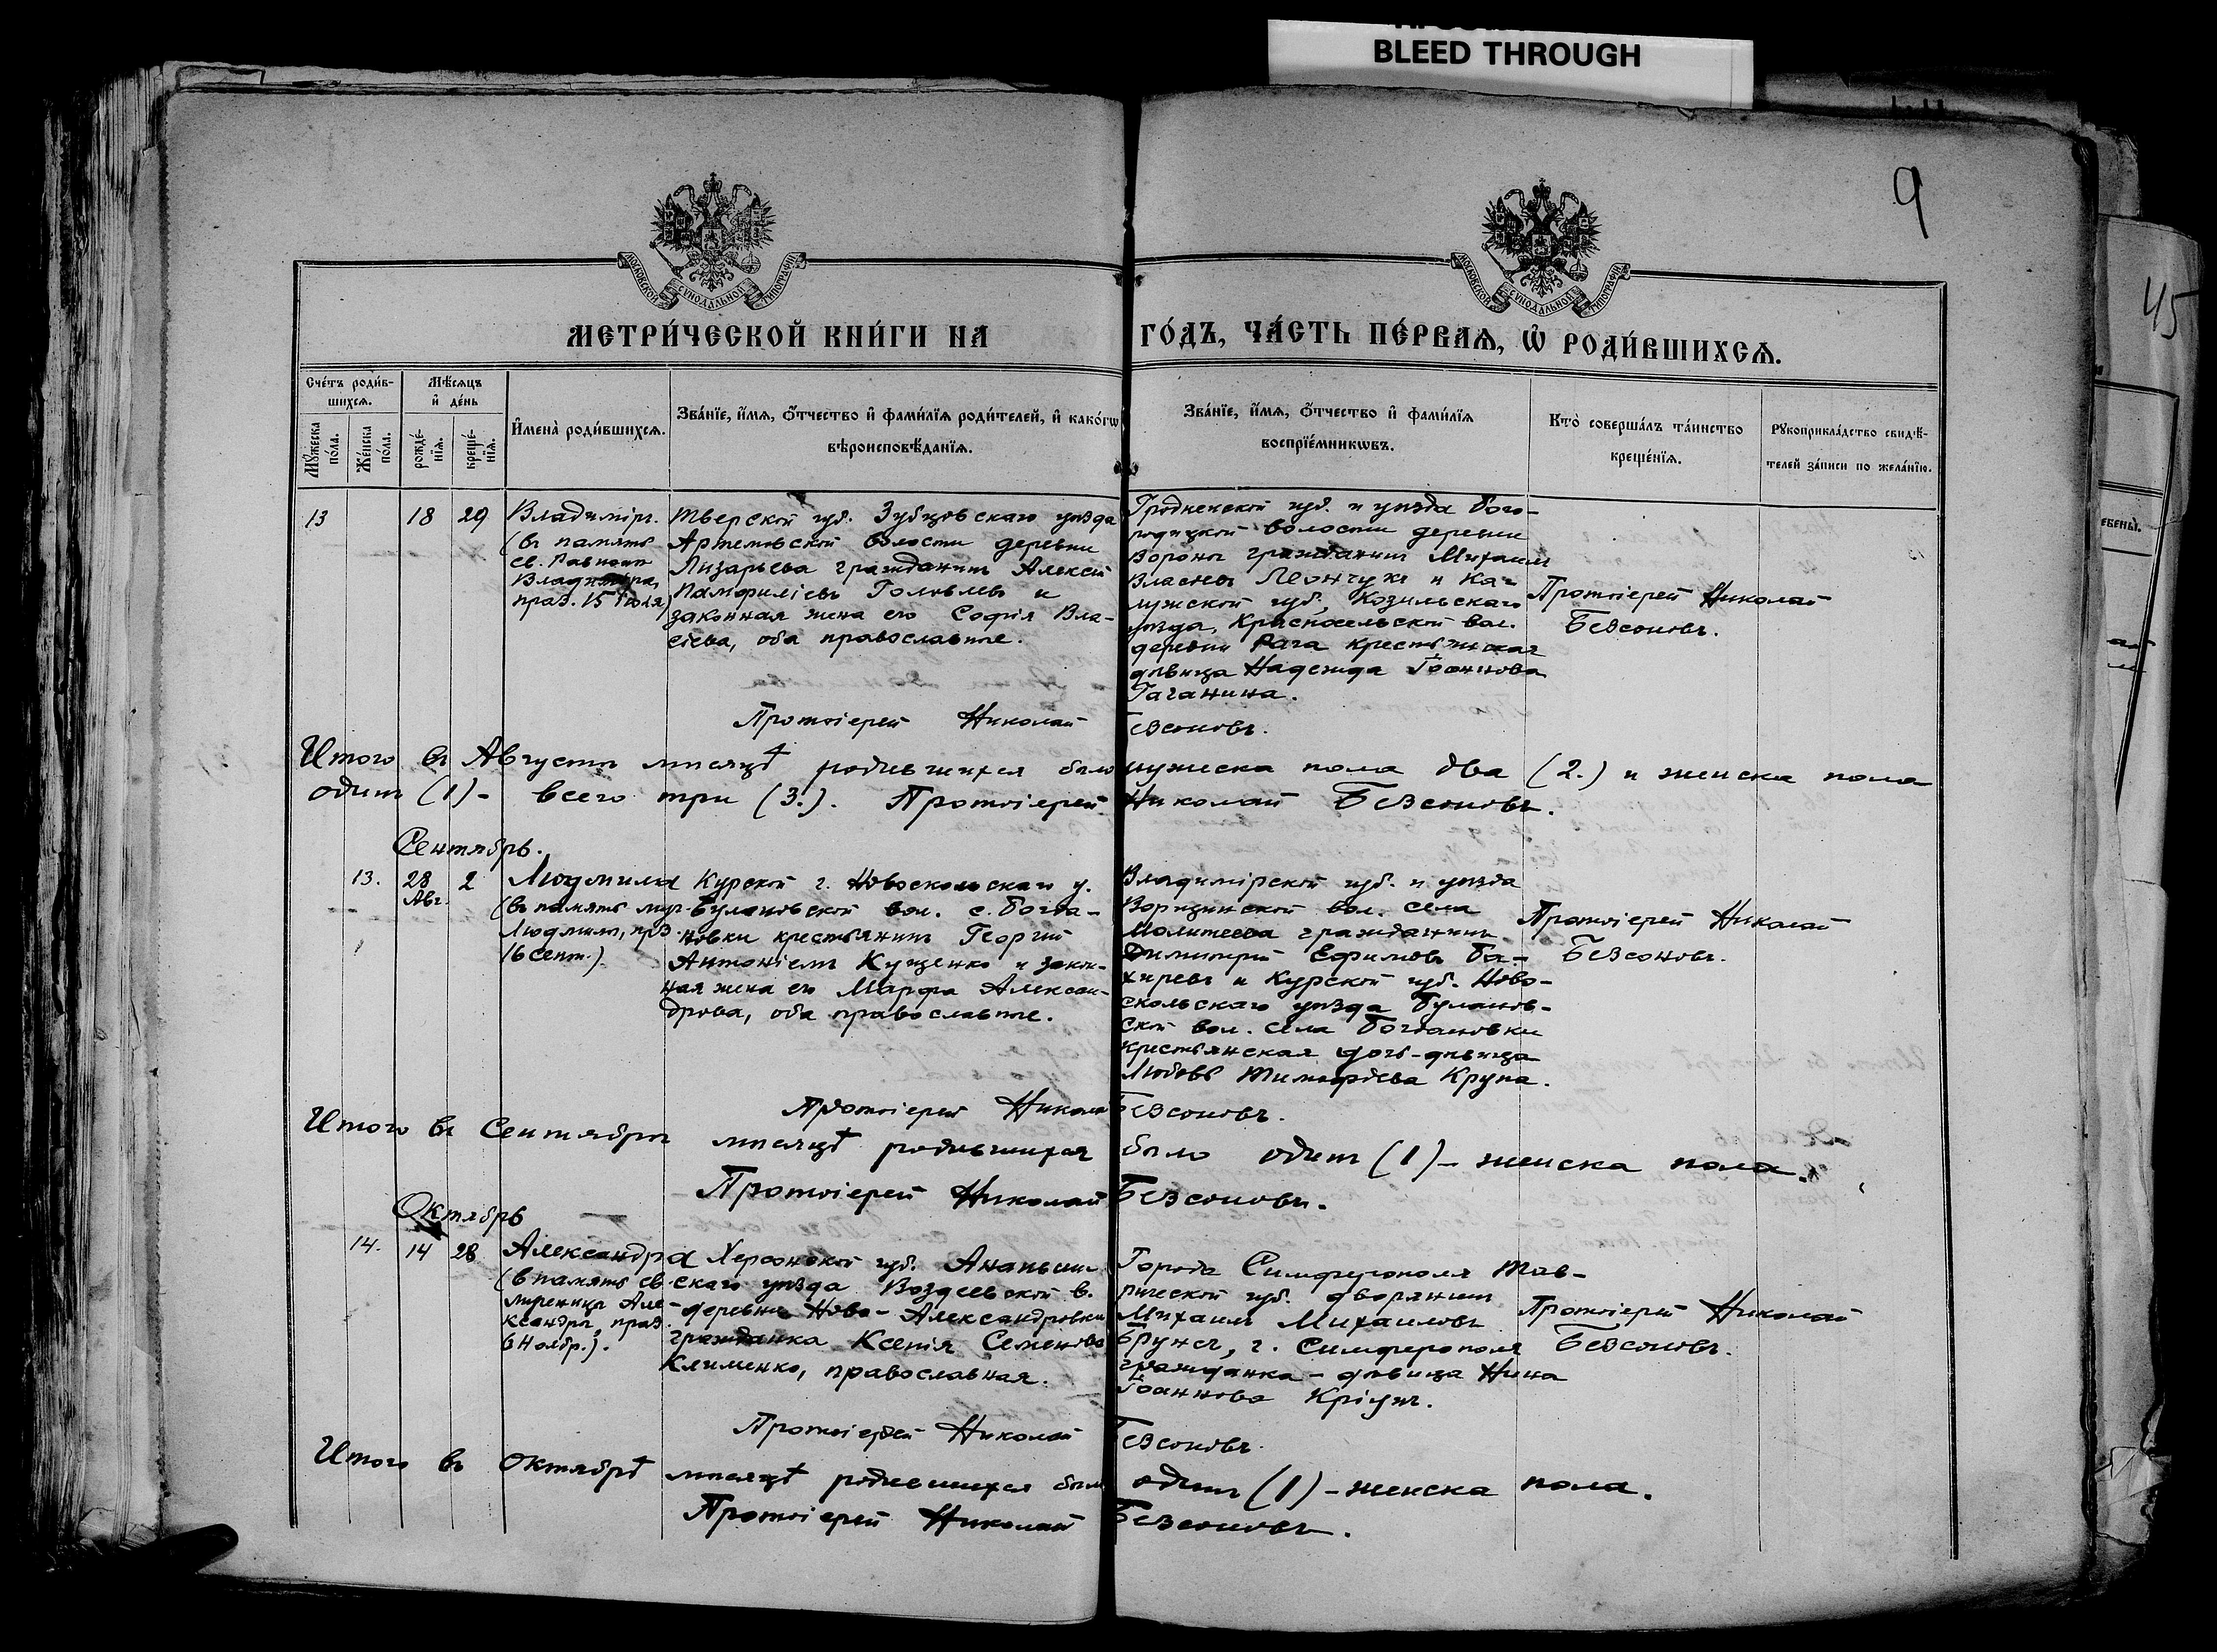 BLEED THROUGH
9
45
МОСКОВСКОЙ СУНОДАЛЬНОЙ ТИПОГРАФІИ
МОСКОВСКОЙ СУНОДАЛЬНОЙ ТИПОГРАФІИ
МЕТРИ́ЧЕСКОЙ КНИ́ГИ НА ГО́ДЪ, ЧА́СТЬ ПЕ́РВАѦ, Ѡ РОДИ́ВШИХСѦ.
Сче́тъ роди́в-
шихсѧ.
Мꙋ́жеска по́ла.
Же́нска по́ла.
Мѣ́сѧцъ
и де́нь
рожде́-
нїѧ.
креще́-
нїѧ.
Имена̀ роди́вшихсѧ.
Зва́нїе, и́мѧ, о́тчество и фами́лїѧ роди́телей, и како́гѡ
вѣроисповѣ́данїѧ.
Зва́нїе, и́мѧ, о́тчество и фами́лїѧ
воспрїе́мникѡвъ.
Кто̀ соверша́лъ та́инство
креще́нїѧ.
Рꙋкоприкла́дство свидѣ́-
телей за́писи по жела́нїю.
13
18
29
Владиміръ.
(въ память
св. Равноап
Владиміра,
праз. 15 Іюля)
Тверской губ. Зубцовскаго уѣзда
Артемовской волости деревни
Лизарьева гражданинъ Алексѣй
Памфиліевъ Головлевъ и
законная жена его Софія Вла-
сіева, оба православные.
Гродненской губ. и уѣзда Бого-
родицкой волости деревни
Вороны гражданинъ Михаилъ
Власіевъ Леончукъ и Ка-
лужской губ., Козельскаго
уѣзда, Красносельской вол.
деревни Рага крестьянская
дѣвица Надежда Іоаннова
Гаганина.
Протоіерей Николай
Безсоновъ.
Протоіерей Николай Безсоновъ.
Итого въ Августѣ мѣсяцѣ родившихся было мужеска пола два (2.) и женска пола
одинъ (1) - всего три (3.). Протоіерей Николай Безсоновъ.
Сентябрь.
13.
28
Авг.
2
Людмила
(въ память муч.
Людмилы, праз.
16 сент.).
Курской г. Новоскольскаго у.
Булановской вол. с. Богда-
новки крестьянинъ Георгій
Антоніевъ Кущенко и закон-
ная жена его Марфа Алексан-
дрова, оба православные.
Владимірской губ. и уѣзда
вол. села
гражданинъ
Димитрій Ефимовъ Ба-
хиревъ и Курской губ. Ново-
скольскаго уѣзда Буланов-
ской вол. села Богдановки
крестьянская дочь-дѣвица
Любовь Тимофѣева Крупа.
Протоіерей Николай
Безсоновъ.
Протоіерей Николай Безсоновъ.
Итого въ Сентябрѣ мѣсяцѣ родившихся было одинъ (1) - женска пола.
Протоіерей Николай Безсоновъ.
Октябрь
14.
14
28
Александра
(въ память св.
мученицы Але-
ксандры, праз.
6 Ноябр.).
Херсонской губ. Ананьин-
скаго уѣзда Воздеевской в.
деревни Ново-Александровки
гражданка Ксенія Семенова
Клименко, православная.
Города Симферополя Тав-
рической губ. дворянинъ
Михаилъ Михаиловъ
Брунсъ, г. Симферополя
гражданка - дѣвица Нина
Іоаннова Кріунъ.
Протоіерей Николай
Безсоновъ.
Протоіерей Николай Безсоновъ.
Итого въ Октябрѣ мѣсяцѣ родившихся было одинъ (1) - женска пола.
Протоіерей Николай Безсоновъ.